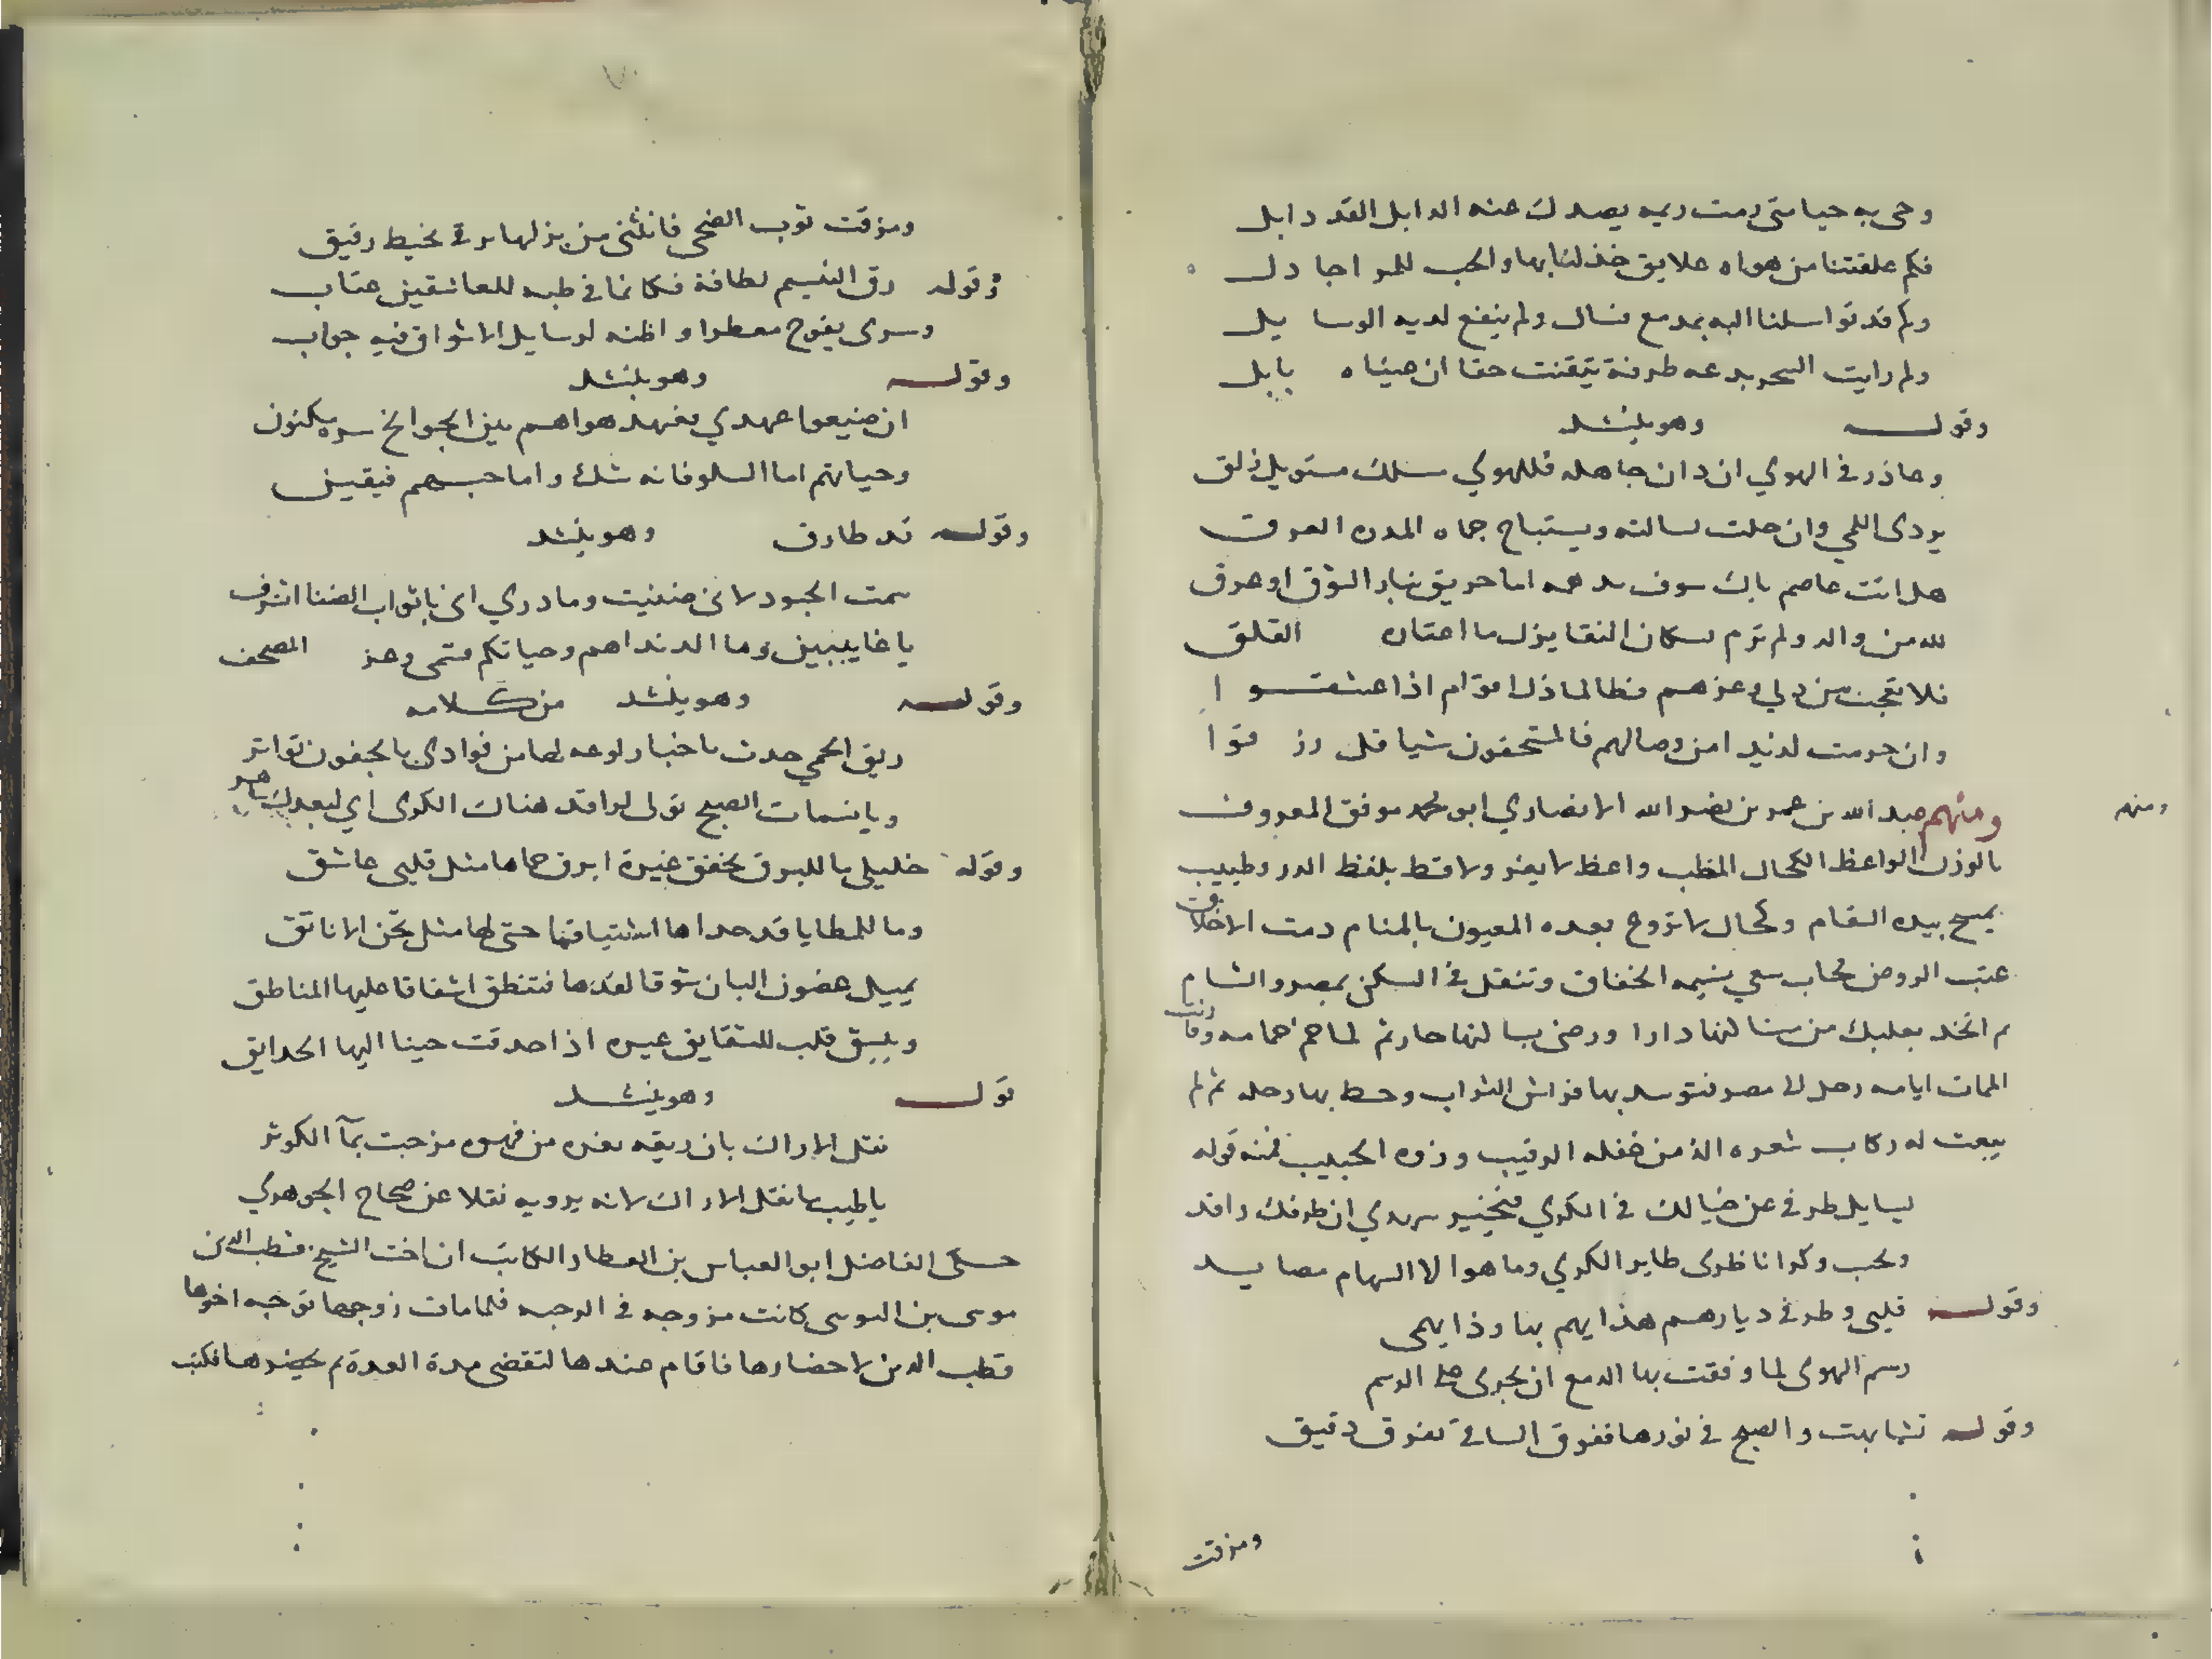 وحى به حيا متى رمت ريمه يصدك عنه الدابل القد دابل
فكم علقتنا من هواه علايق خذلنا بها والحب للمرا جادل
وكم قد توا سلنا اليه بمدمع فسال ولم ينفع لديه الوسا يل
ولم رايت السحر بدعه طرفه تيقنت حقا ان عيناه بابل
وقوله وهو ينشد
وعاذر في الهوي ان دان جاهله فللهوي سلك مستوبل زلق
يودى اللمي وان حلت لسالته ويستباح حماه المدن العرق
هل انت عاصم باك سوف يدهمه اما حريق بنار الشوق او غرق
لله من والد ولم ترم سكان النقا يزل ما اعتاده القلق
فلا تعجبن من دلي وعزهم فطالما ذل اقوام اذا عشقوا
وان حرمت لديد امن وصالهم فالمستحقون شيا قل رز قوا
ومنهم عبد الله بن عمر بن نصر الله الانصاري ابو محمد موفق المعروف
ومنهم
بالوزن الواعظ الكحال المطب واعظ لا يعثر ولا قط بلفظ الدر وطبيب
يمسح بيده السقام وكحال لا تروح بعده العيون بالمنام دمت الاخلاق
عتب الروض محاب سعي بنسيمه الخفاق وتنقل في السكن بمصر والشام
م اتخد بعلبك من بنا لتها دارا ورضى بسا لتها جار ثم لما حم حمامه ودنت وفا
الممات ايامه رحل الى مصر فتوسد بها فراش التراب وحط بها رحله ثم لم
يبعث له ركاب شعره الذ من غفله الرقيب وزوره الحبيب فمنه قوله
يسايل طرفي عن خيالك في الكري فيخبر سهدي ان طرفك راقد
وتحب وكرا ناظرى طاير الكري وما هو الا السهام مصايد
وقوله قلبى وطرفي ديارهم هذا يهم بها وذا يهمى
رسم الهوى لما وقفت بها الدمع ان يجرى على الرسم
وقوله تشابهت والصبح في نورها ففوق الساقي تفوق دقيق
ومزقت
ومزقت ثوب الضحى فانثنى من بزلها يرقى بخيط رقيق
وقوله رق النسيم لطافة فكانما في طيه للعاشقين عتاب
وسرى يفوح معطرا واظنه لرسايل الاشواق فيه جواب
وقوله وهو ينشد
ان ضيعوا عهدي فعهد هواهم بين الجوانح سره مكنون
وحياتهم اما السلو فانه شك واما حبهم فيقين
وقوله قد طارف وهو ينشد
سمت الحسود لانى ضنيت وما دري انى باثواب الضنا اتشرف
يا غاييين وما الد نداهم وحياتكم قسمى وعز المصحف
وقوله وهو ينشد من كلامه
ريق الحمي حدث باخبار لوعه لها من فوادي بالجفون تواتر
ويا نسمات الصبح تولى لراقد هناك الكرى اي لبعدك ساهر
وقوله خليلى ما للبرق يخفق غيرة ابرق حماها مثل قلبى عاشق
وما للمطايا قد حداها اشتياقها حتى لها مثل نحن الاناتق
يميل غضون البان شوقا لقدها فتنطق اشفاقا عليها المناطق
ويشق قلب للشقايق غيره اذا حدقت حينا اليها الحدايق
قوله وهو ينشد
نقل الاراك بان ريقه ثغره من قهوه مزجت بمآ الكوثر
يا طيب ما نقل الاراك لانه يرويه نقلا عن صحاح الجوهري
حكى الفاضل ابو العباس بن العطار الكاتب ان اخت الشيخ قطب الدين
موسى بن اليوسى كانت مزوجه في الرحبه فلما مات زوجها توجه اخوها
قطب الدين لاحضارها فاقام عندها لتقضى مدة العدة ثم يحضرها فكتب